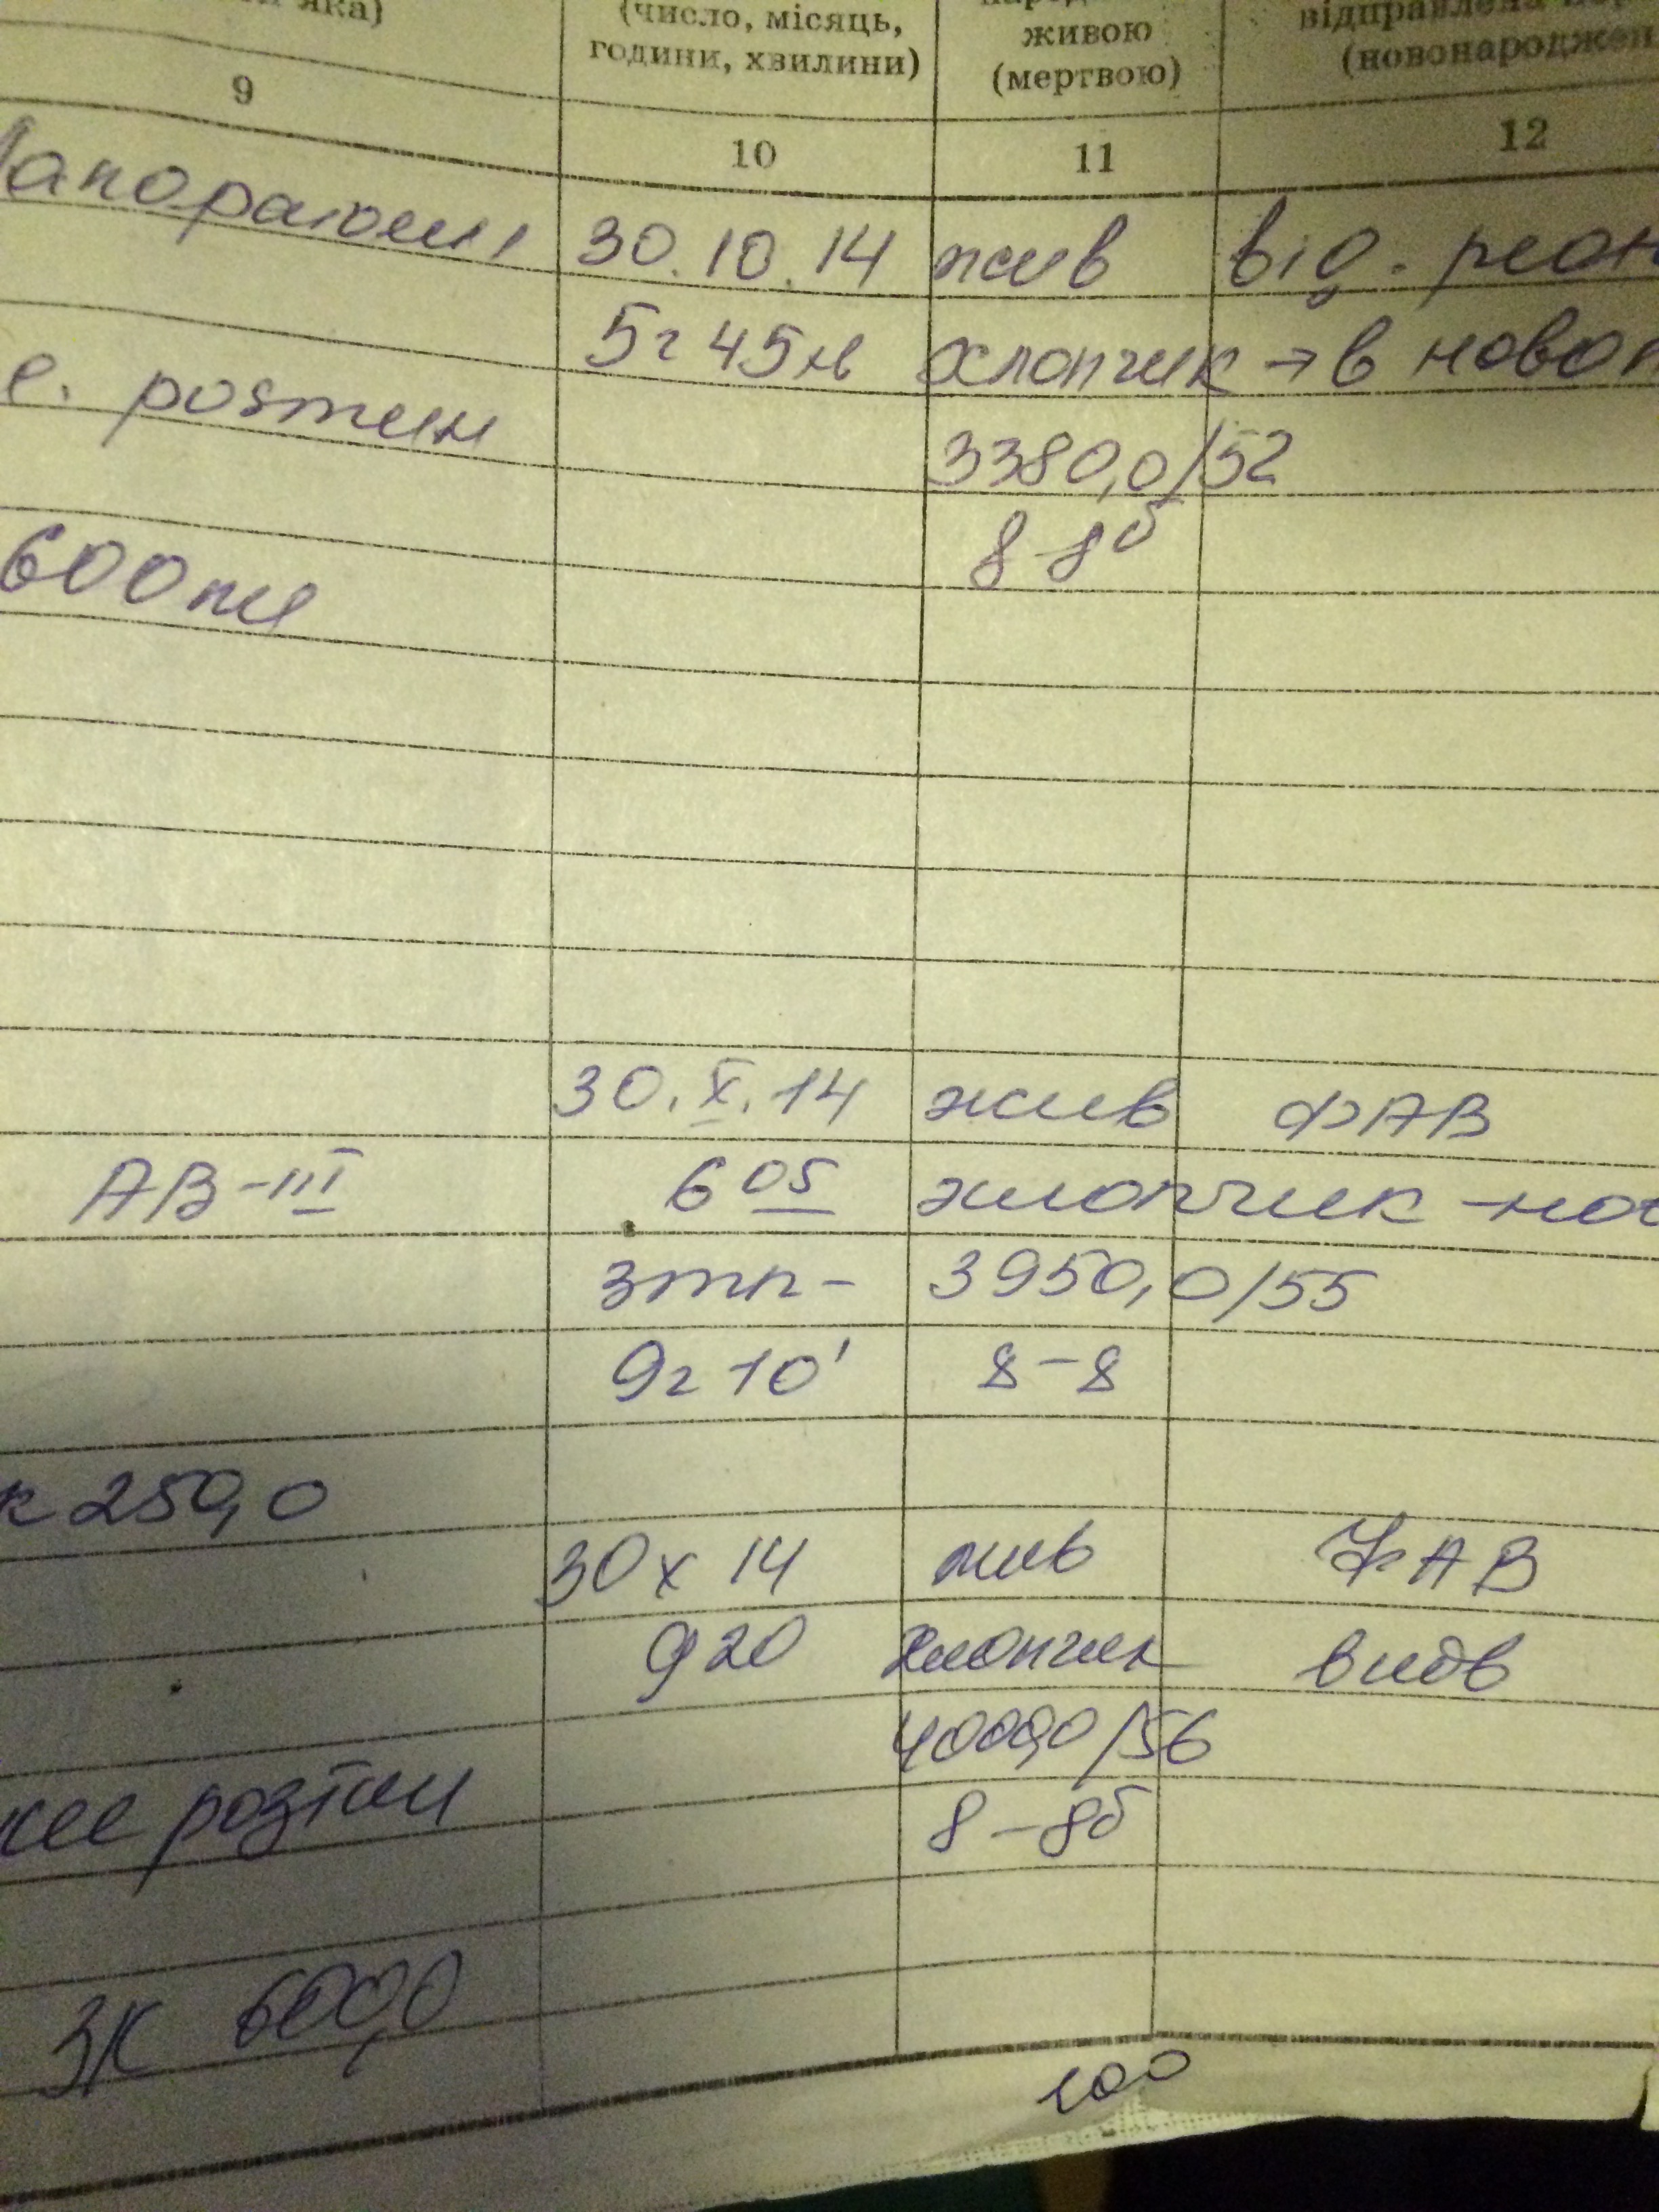 яка)
(число, місяць,
години, хвилини)
живою
(мертвою)
відправлена
(новонароджен
9
10
11
12
30.10.14 жив від. реан
5г 45м хлопчик → в новон
е. розтин
3380,0/52
8-8б
600мл
30.X.14 жив ФАВ
АВ-III 6 05 хлопчик -нов
9г 10' 3950,0/55
8-8
к 250,0
30 х 14 жив ФАВ
9 20 хлопчик видв
4000,0/56
розтин
8-8б
ЗК 600,0
100